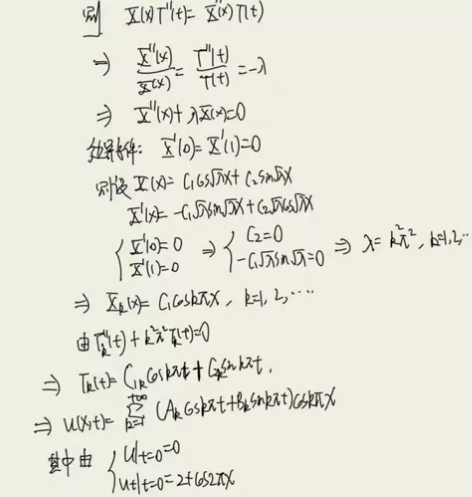 则 X(x)T''(t)=X''(x)T(t)
⇒ X''(x)/X(x) = T''(t)/T(t) = -λ
⇒ X''(x)+λX(x)=0
条件: X'(0)=X'(1)=0
则设 X(x)=C₁cos√λx+C₂sin√λx
X'(x)=-C₁√λsin√λx+C₂√λcos√λx
{ X'(0)=0 ⇒ { C₂=0
X'(1)=0 -C₁√λsin√λ=0 ⇒ λ=k²π², k=1,2,…
⇒ Xₖ(x)=C₁coskπx, k=1,2,……
由Tₖ''(t)+k²π²Tₖ(t)=0
⇒ Tₖ(t)=C₁ₖcoskπt+C₂ₖsinkπt,
⇒ u(x,t)=∑_{k=1}^{+∞}(Aₖcoskπt+Bₖsinkπt)coskπx
其中由 { u|t=0=0
ut|t=0=2+cos2πx